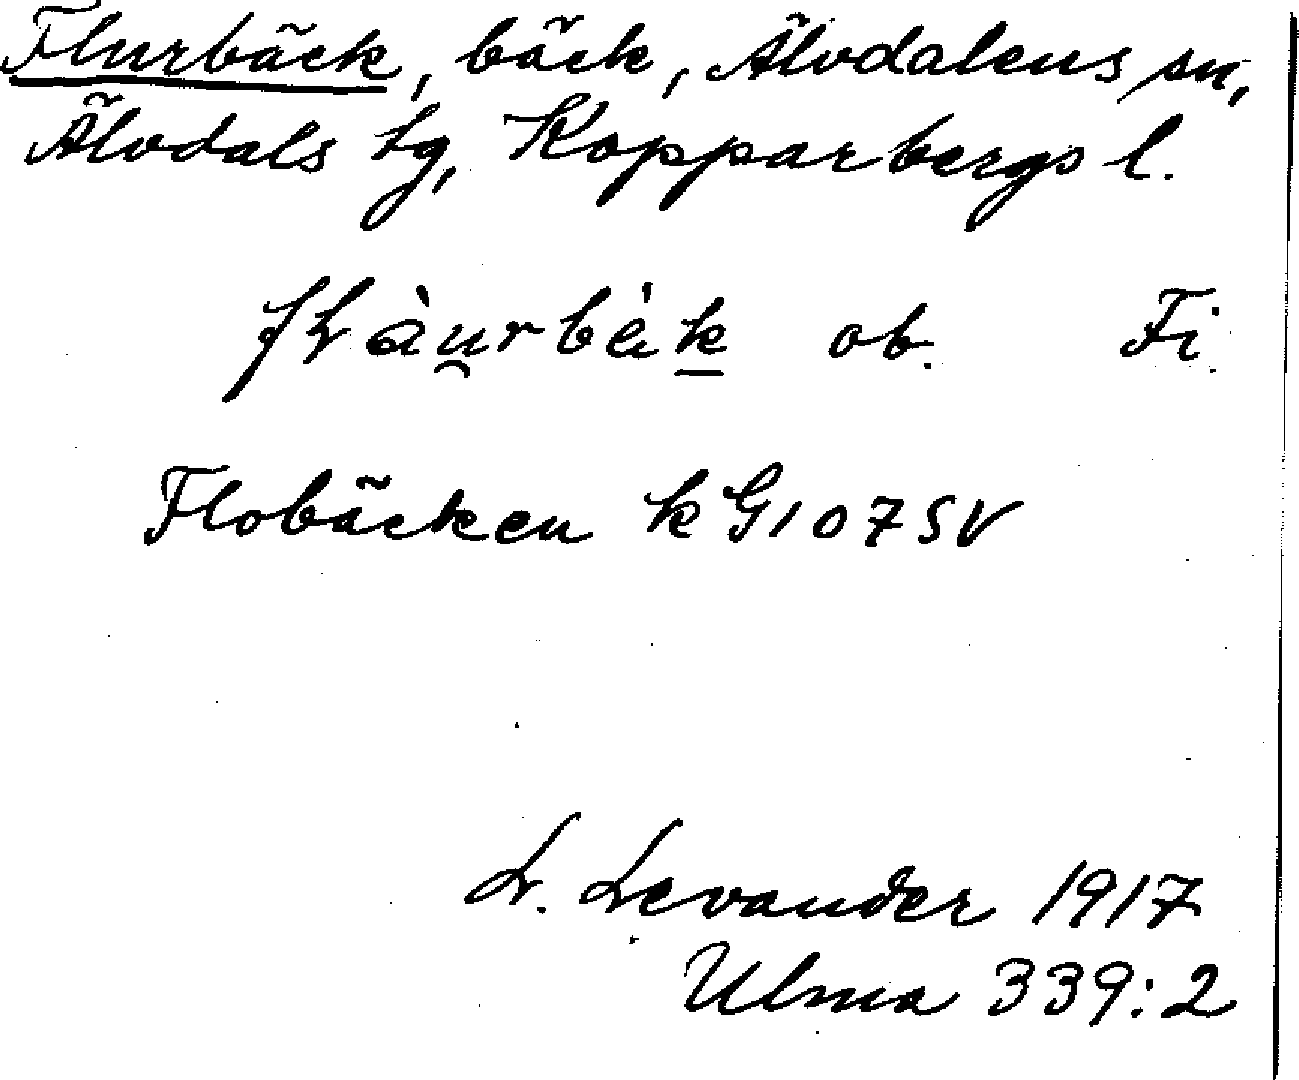 Flurbäck, bäck, Älvdalens sn,
Älvdals tg, Kopparbergs l.
ob. Fi.
Flobäcken kG107SV
L. Levander 1917
Ulma 339:2